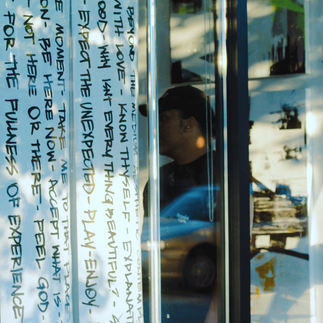 BEYOND THE MEDIUM
WITH LOVE - KNOW THYSELF - EXPLANATI
GOOD - WHY ISN'T EVERYTHING BEAUTIFUL? S
- EXPECT THE UNEXPECTED - PLAY - ENJOY -
E MOMENT - TAKE ME TO THAT PLACE
ON - BE HERE NOW - ACCEPT WHAT IS -
- NOT HERE OR THERE - FEEL GOD -
FOR THE FULLNESS OF EXPERIENCE